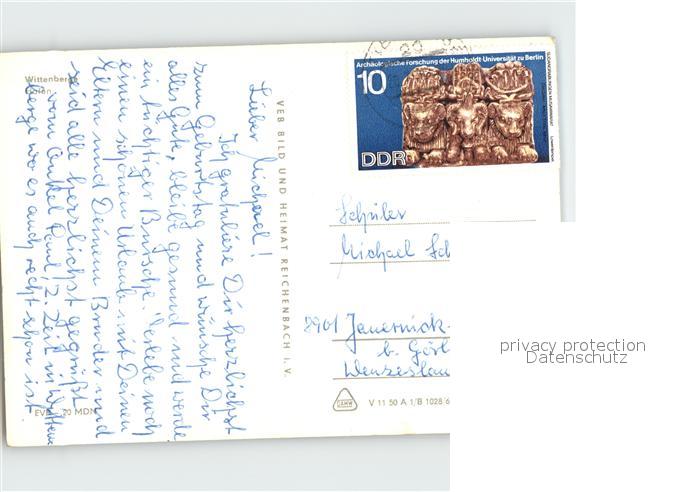 Wittenberge
Hafen
Lieber Michael!
Ich gratuliere Dir herzlichst
zum Geburtstag und wünsche Dir
alles Gute, bleibe gesund und werde
ein tüchtiger Bursche. Verlebe noch
einen schönen Urlaub mit Deinen
Eltern und Deinem Bruder und
seid alle herzlichst gegrüßt
vom Onkel Paul, z. Zeit in Witten
berge wo es auch recht schön ist.
EVP 20 MDN
VEB BILD UND HEIMAT REICHENBACH i. V.
Archäologische Forschung der Humboldt-Universität zu Berlin
10
DDR
Schüler
Michael Sch
8901 Jauernick-
b. Görl
Wenzeslau
V 11 50 A 1/B 1028 6
privacy protection
Datenschutz